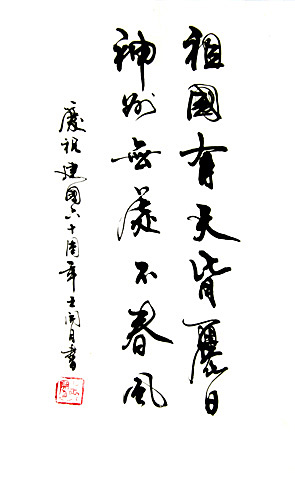 祖國有天皆麗日
神州無處不春風
慶祝建國六十周年士月書